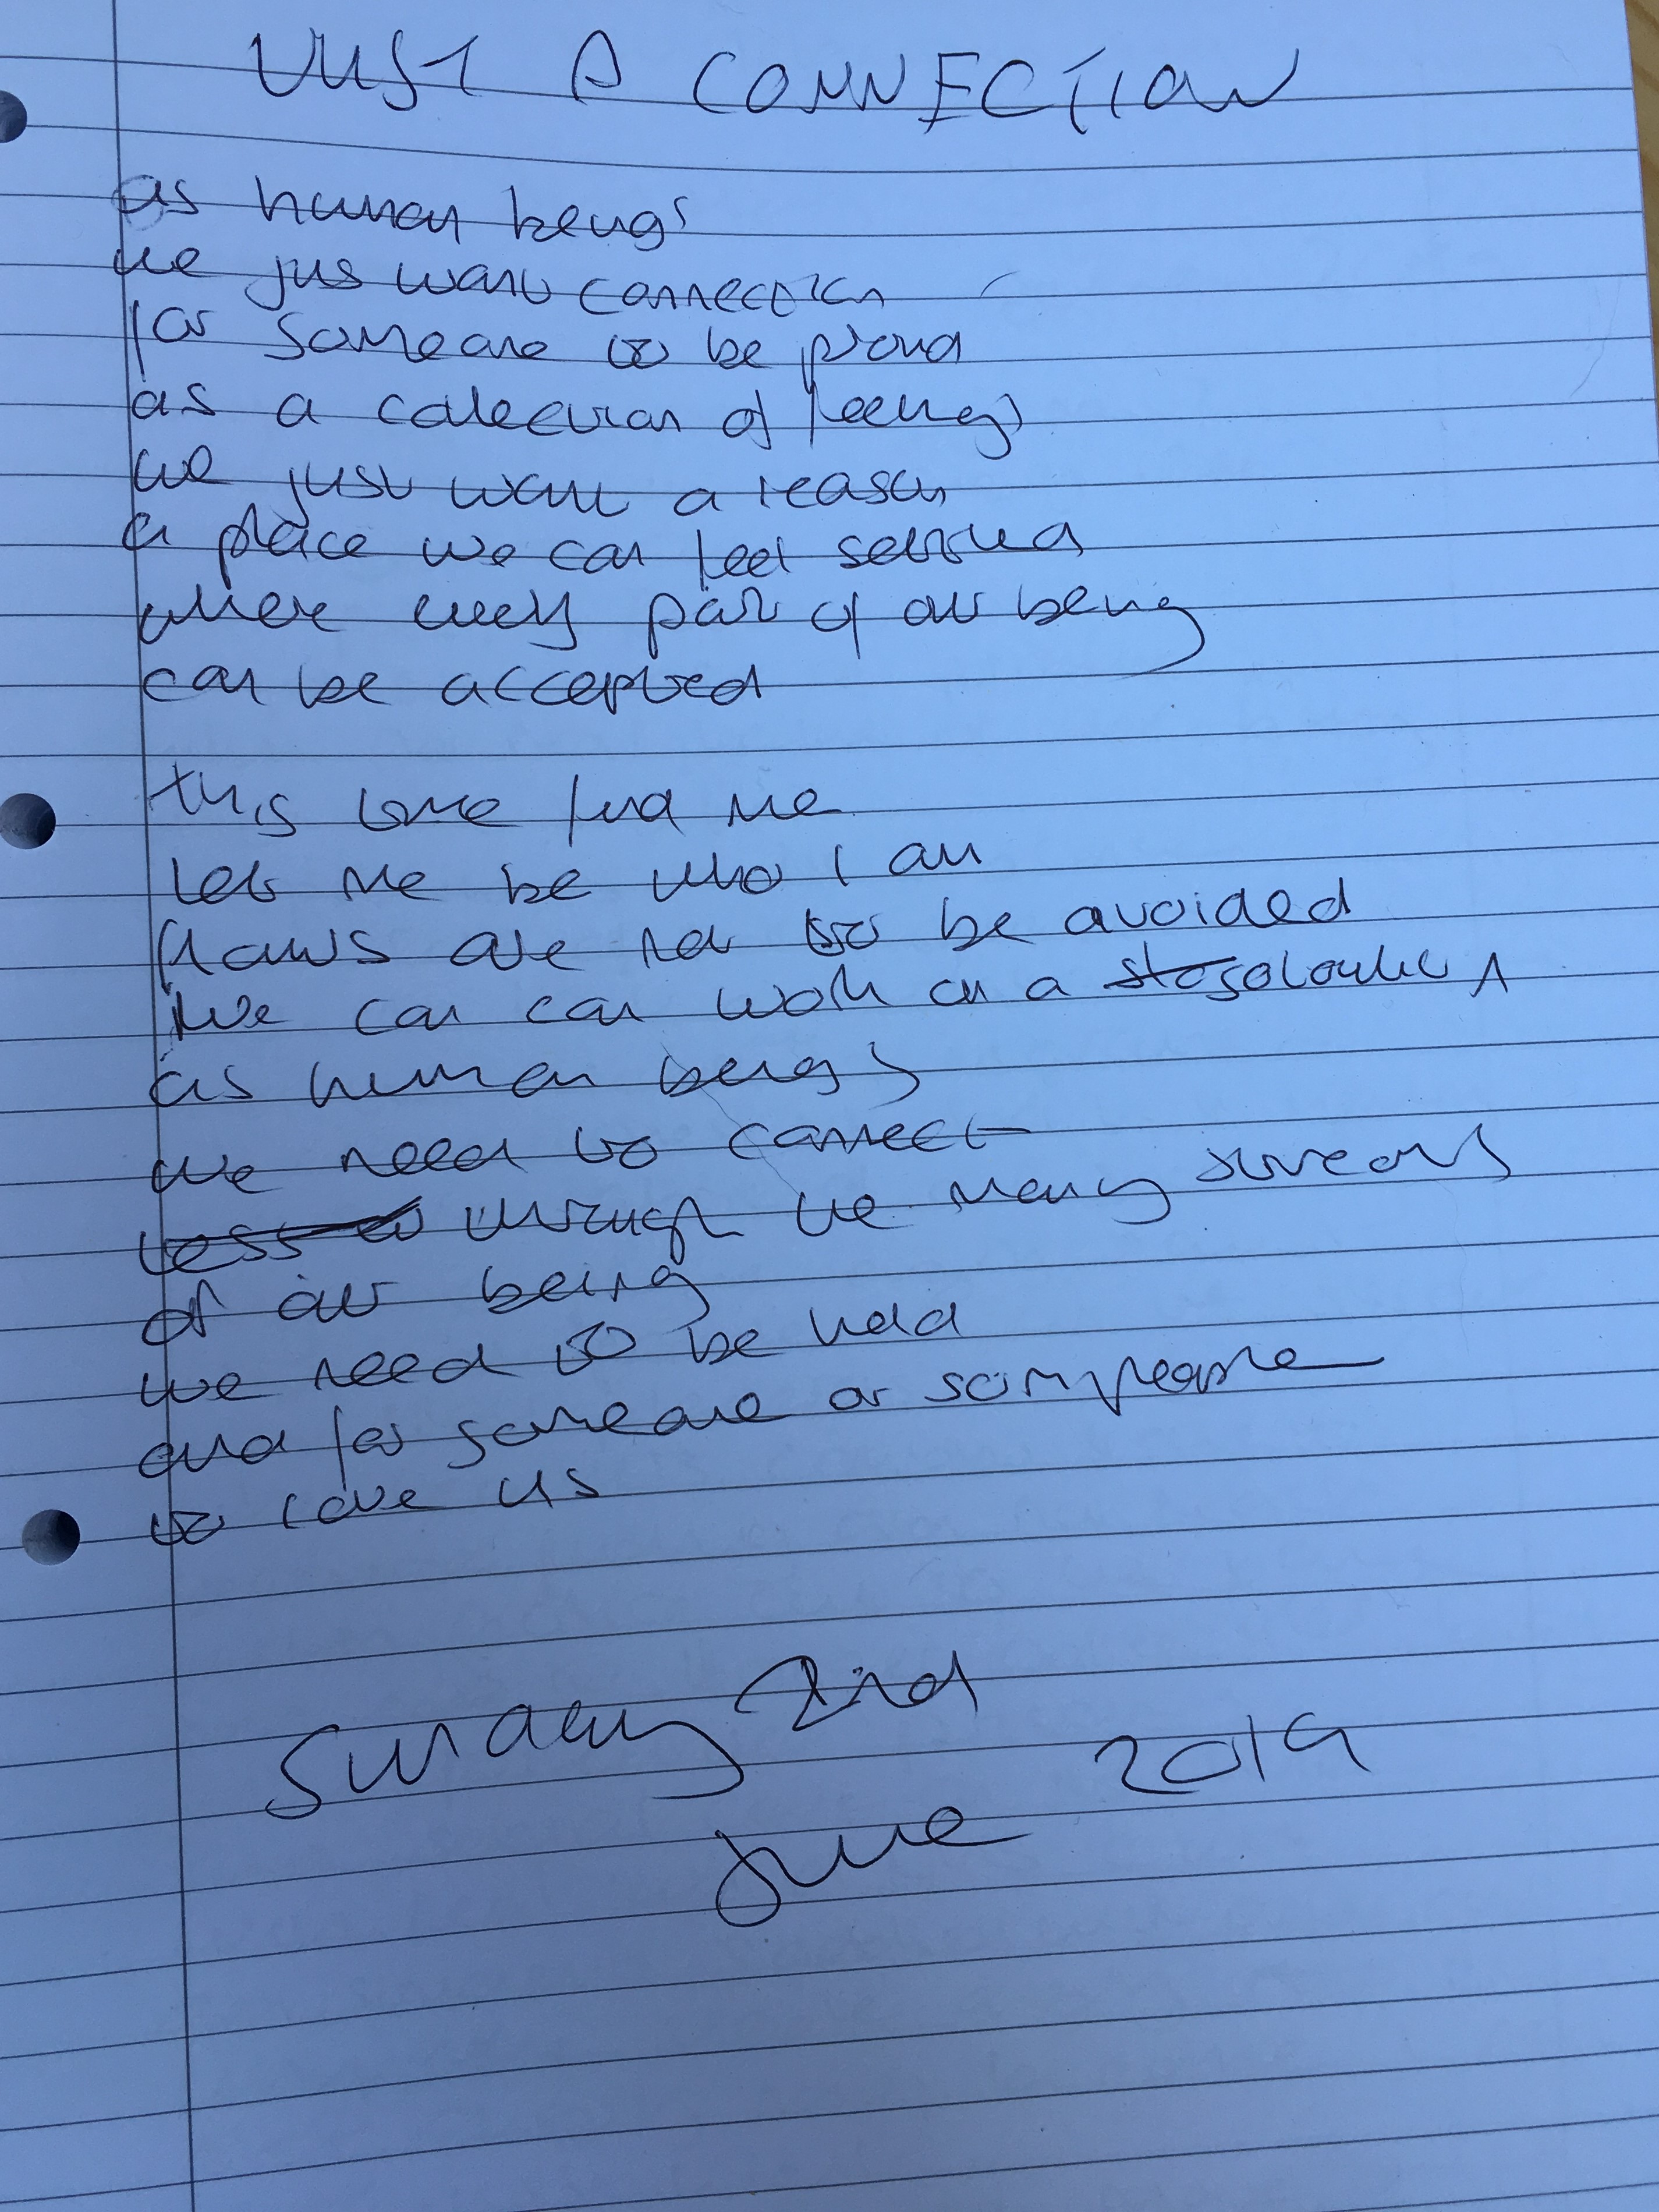 JUST A CONNECTION
as human beings
we jus want connection
for someone to be proud
as a collection of feelings
we just want a reason
a place we can feel settled
where every part of our being
can be accepted
this love find me
let me be who I am
flaws are not to be avoided
We can can work on a
as human beings
we need to connect
through the many streams
of our being
we need to be held
and for someone or
to love us
Sunday 2nd
June 2019